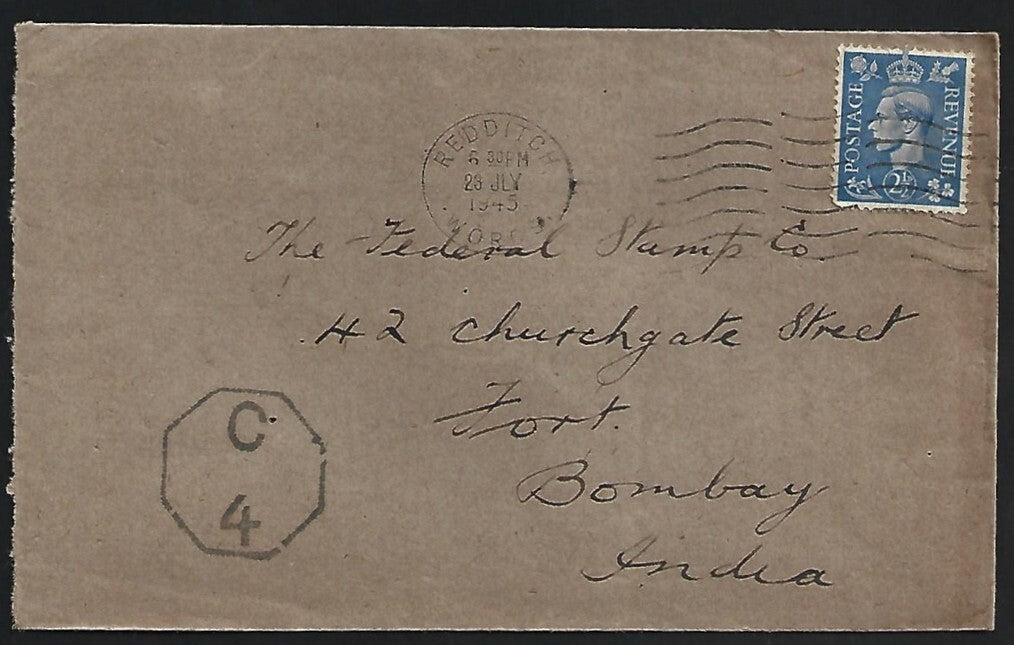 POSTAGE
REVENUE
2½
REDDITCH
6 30PM
23 JLY
1945
The Federal Stamp Co
42 Churchgate Street
Fort.
Bombay
India
C
4